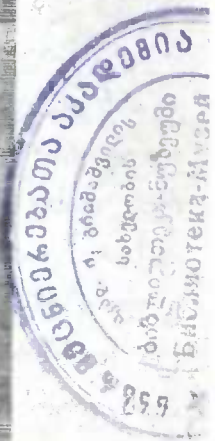 მეცნიერებათა აკადემია
გრიშაშვილის
სახელობის
ბიბლიოთეკა-მუზეუმი
Библиотека-Музей